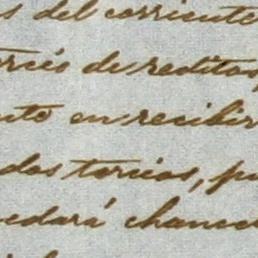 s del corriente
orcio de reditos,
nto en recibir
dos torcios, pu
uedará chancel